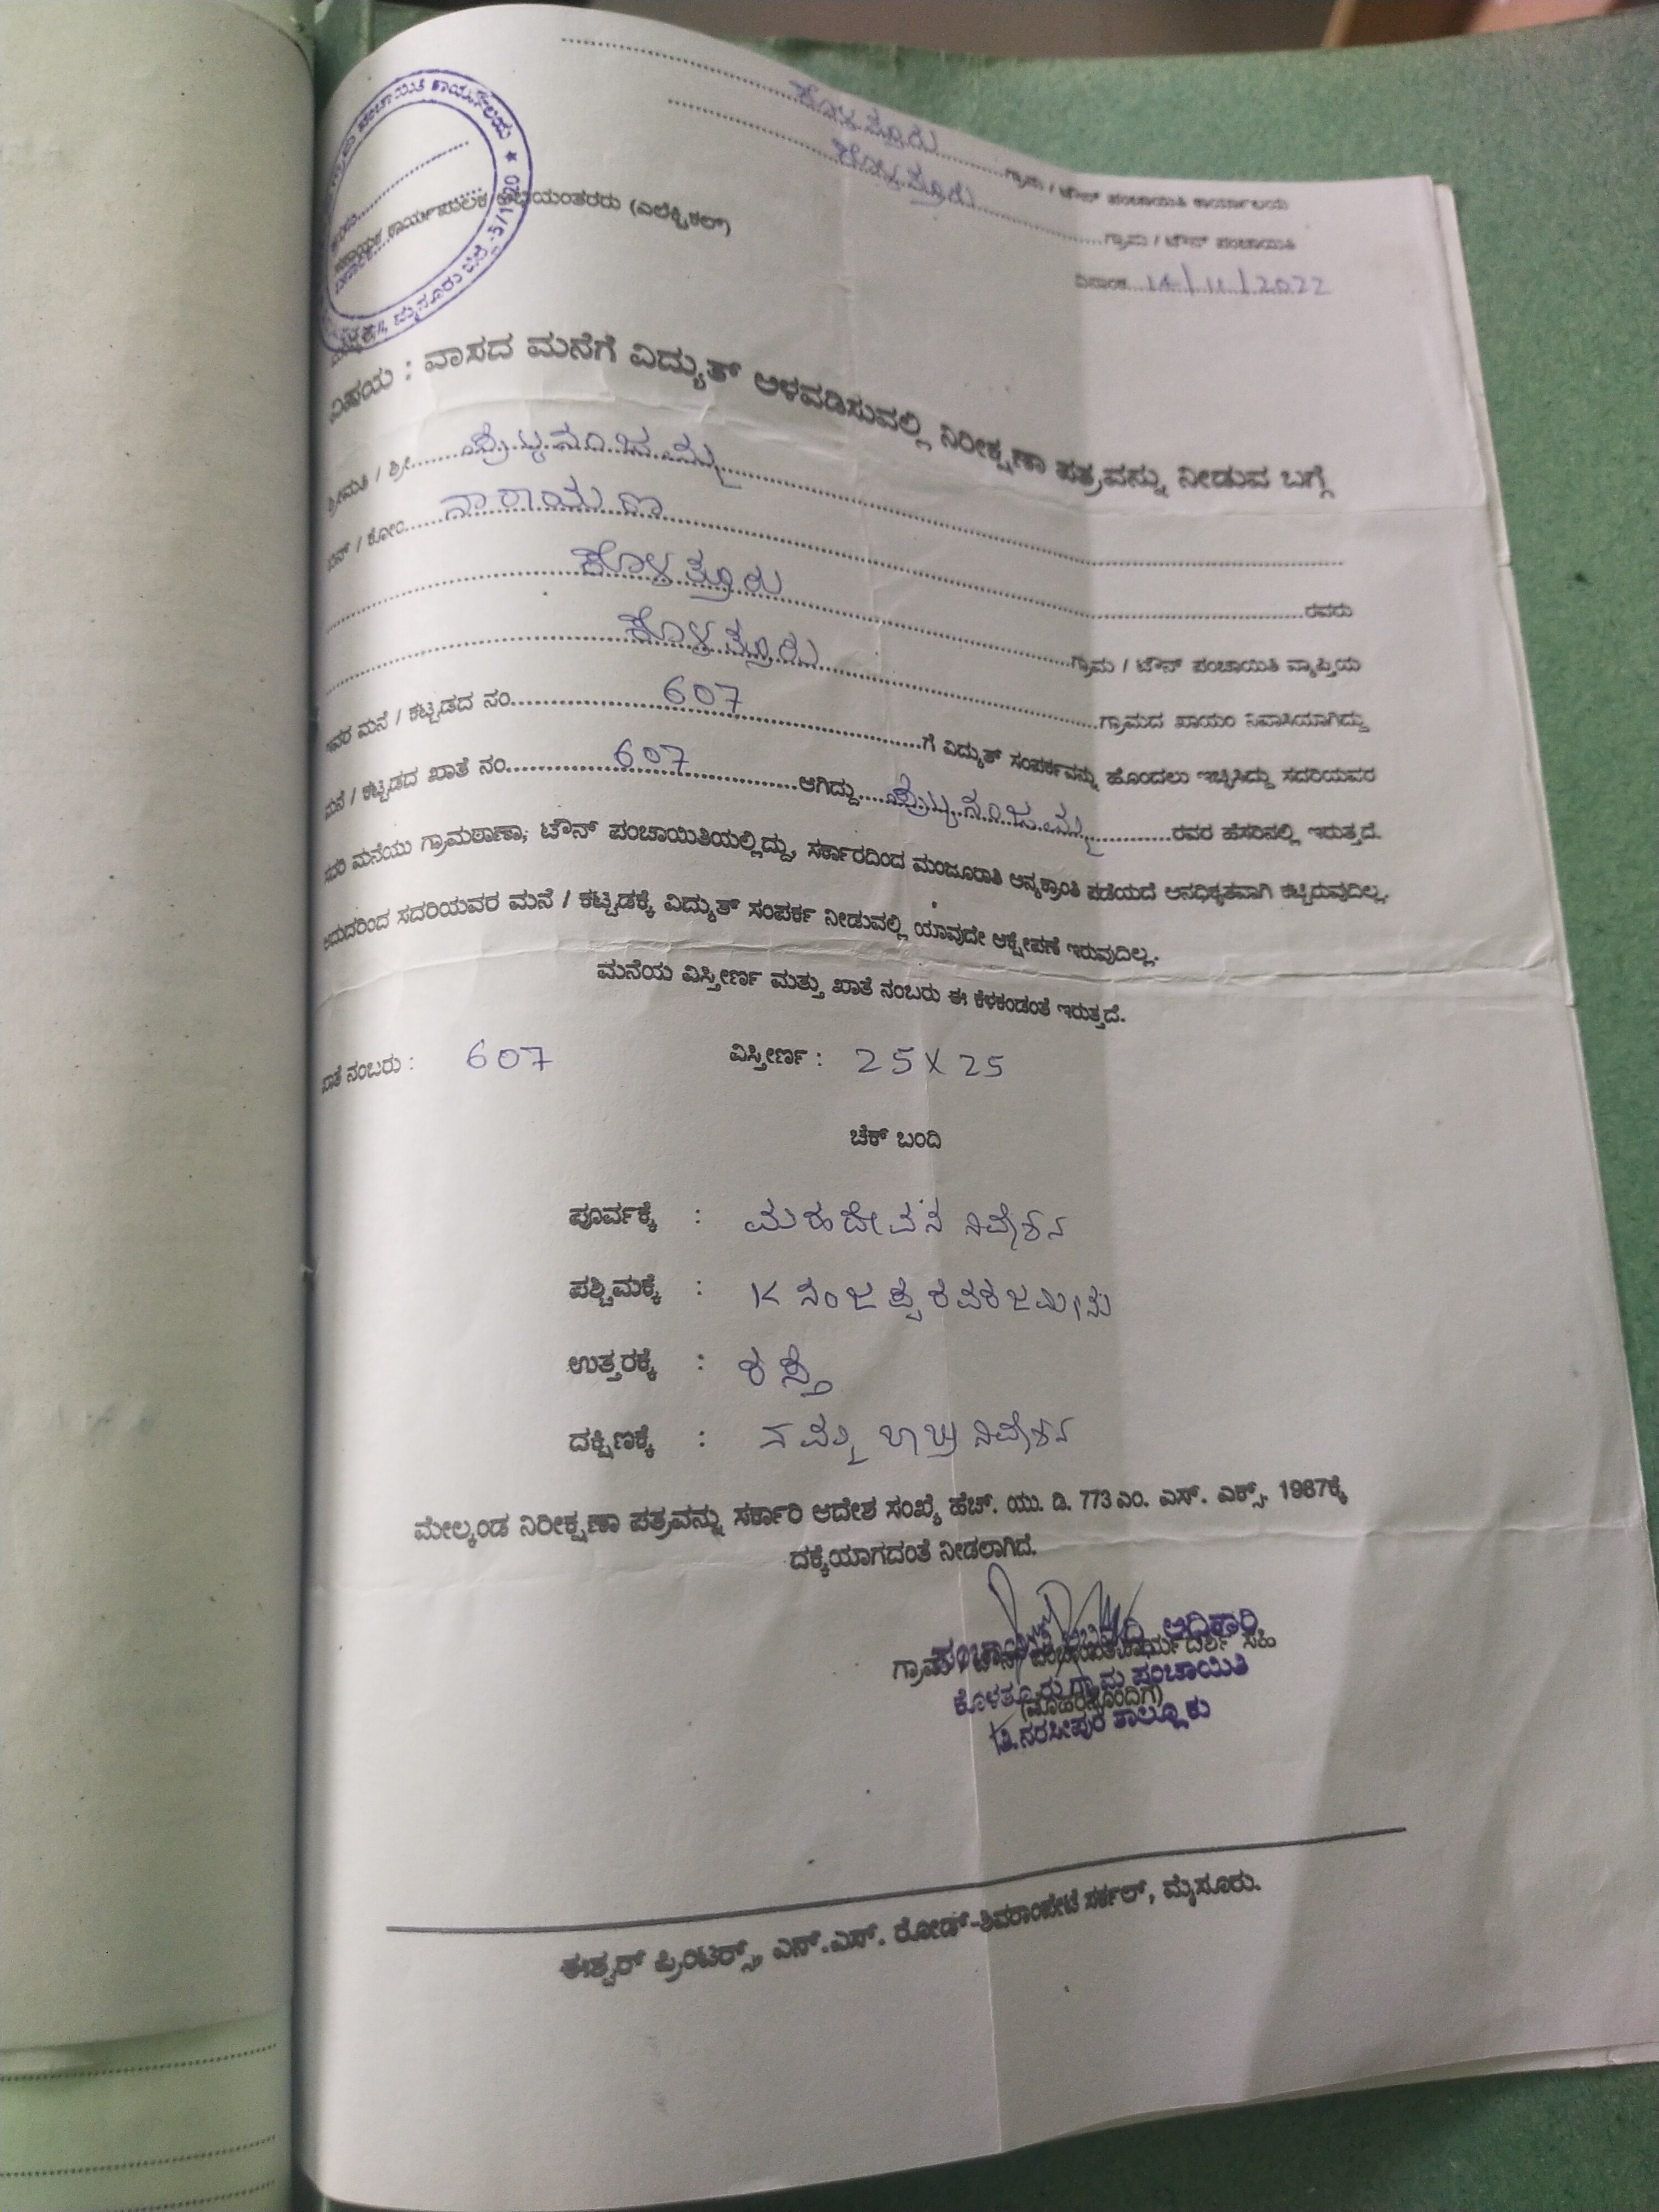 ಕೊಳತ್ತೂರು ಗ್ರಾಮ / ಟೌನ್ ಪಂಚಾಯಿತಿ ಕಾರ್ಯಾಲಯ
ಕೊಳತ್ತೂರು ಗ್ರಾಮ / ಟೌನ್ ಪಂಚಾಯಿತಿ
ದಿನಾಂಕ 14/11/2022
ಪಂಚಾಯಿತಿ ಕಾರ್ಯಾಲಯ ★
ಸಹಾಯಕ ಕಾರ್ಯಪಾಲಕ ಅಭಿಯಂತರರು (ಎಲೆಕ್ಟ್ರಿಕಲ್)
ವಿಷಯ : ವಾಸದ ಮನೆಗೆ ವಿದ್ಯುತ್ ಅಳವಡಿಸುವಲ್ಲಿ ನಿರೀಕ್ಷಣಾ ಪತ್ರವನ್ನು ನೀಡುವ ಬಗ್ಗೆ
ಶ್ರೀಮತಿ / ಶ್ರೀ
ಬಿನ್ / ಕೋಂ ನಾರಾಯಣ ರವರು
ಕೊಳತ್ತೂರು ಗ್ರಾಮ / ಟೌನ್ ಪಂಚಾಯಿತಿ ವ್ಯಾಪ್ತಿಯ
ಕೊಳತ್ತೂರು ಗ್ರಾಮದ ಖಾಯಂ ನಿವಾಸಿಯಾಗಿದ್ದು
ಇವರ ಮನೆ / ಕಟ್ಟಡದ ನಂ. 607 ಗೆ ವಿದ್ಯುತ್ ಸಂಪರ್ಕವನ್ನು ಹೊಂದಲು ಇಚ್ಛಿಸಿದ್ದು ಸದರಿಯವರ
ಮನೆ / ಕಟ್ಟಡದ ಖಾತೆ ನಂ. 607 ಆಗಿದ್ದು ರವರ ಹೆಸರಿನಲ್ಲಿ ಇರುತ್ತದೆ.
ಸದರಿ ಮನೆಯು ಗ್ರಾಮಠಾಣಾ, ಟೌನ್ ಪಂಚಾಯಿತಿಯಲ್ಲಿದ್ದು, ಸರ್ಕಾರದಿಂದ ಮಂಜೂರಾತಿ ಅನ್ಯಕ್ರಾಂತಿ ಪಡೆಯದೆ ಅನಧಿಕೃತವಾಗಿ ಕಟ್ಟಿರುವುದಿಲ್ಲ.
ಆದುದರಿಂದ ಸದರಿಯವರ ಮನೆ / ಕಟ್ಟಡಕ್ಕೆ ವಿದ್ಯುತ್ ಸಂಪರ್ಕ ನೀಡುವಲ್ಲಿ ಯಾವುದೇ ಆಕ್ಷೇಪಣೆ ಇರುವುದಿಲ್ಲ.
ಮನೆಯ ವಿಸ್ತೀರ್ಣ ಮತ್ತು ಖಾತೆ ನಂಬರು ಈ ಕೆಳಕಂಡಂತೆ ಇರುತ್ತದೆ.
ಖಾತೆ ನಂಬರು : 607 ವಿಸ್ತೀರ್ಣ : 25 X 25
ಚೆಕ್ ಬಂದಿ
ಪೂರ್ವಕ್ಕೆ : ಮಹದೇವನ ನಿವೇಶನ
ಪಶ್ಚಿಮಕ್ಕೆ : K ನಂಜಪ್ಪರವರಜಮೀನು
ಉತ್ತರಕ್ಕೆ : ರಸ್ತೆ
ದಕ್ಷಿಣಕ್ಕೆ : ನಿವೇಶನ
ಮೇಲ್ಕಂಡ ನಿರೀಕ್ಷಣಾ ಪತ್ರವನ್ನು ಸರ್ಕಾರಿ ಆದೇಶ ಸಂಖ್ಯೆ ಹೆಚ್. ಯು. ಡಿ. 773 ಎಂ. ಎಸ್. ಎಕ್ಸ್. 1987ಕ್ಕೆ
ದಕ್ಕೆಯಾಗದಂತೆ ನೀಡಲಾಗಿದೆ.
ಪಂಚಾಯಿತಿ ಅಭಿವೃದ್ಧಿ ಅಧಿಕಾರಿ
ಕೊಳತ್ತೂರು ಗ್ರಾಮ ಪಂಚಾಯಿತಿ
(ಮೊಹರಿನೊಂದಿಗೆ)
ತಿ.ನರಸೀಪುರ ತಾಲ್ಲೂಕು
ಈಶ್ವರ್ ಪ್ರಿಂಟರ್ಸ್, ಎನ್.ಎಸ್. ರೋಡ್-ಶಿವರಾಂಪೇಟೆ ಸರ್ಕಲ್, ಮೈಸೂರು.